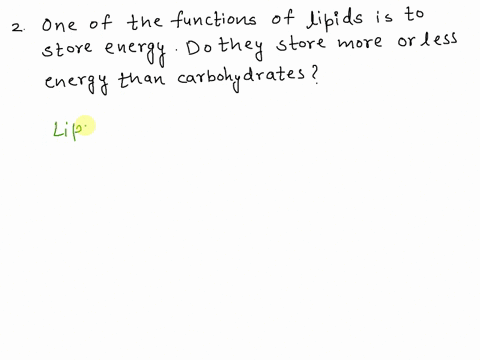 2. One of the functions of lipids is to
store energy. Do they store more or less
energy than carbohydrates?
Lip